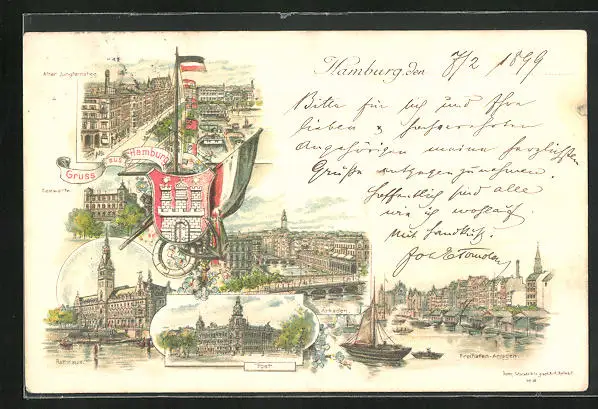 Alter Jungfernstieg.
Hamburg, den 7/2 1899
Bitte für sich und Ihre
lieben & hochverehrten
Angehörigen meine herzlichsten
Grüße entgegenzunehmen.
Hoffentlich sind alle
wie ich wohlauf
Mit Handkuß:
Gruss aus Hamburg
Seewarte.
Rathhaus.
Post
Arkaden.
Freihafen-Anlagen.